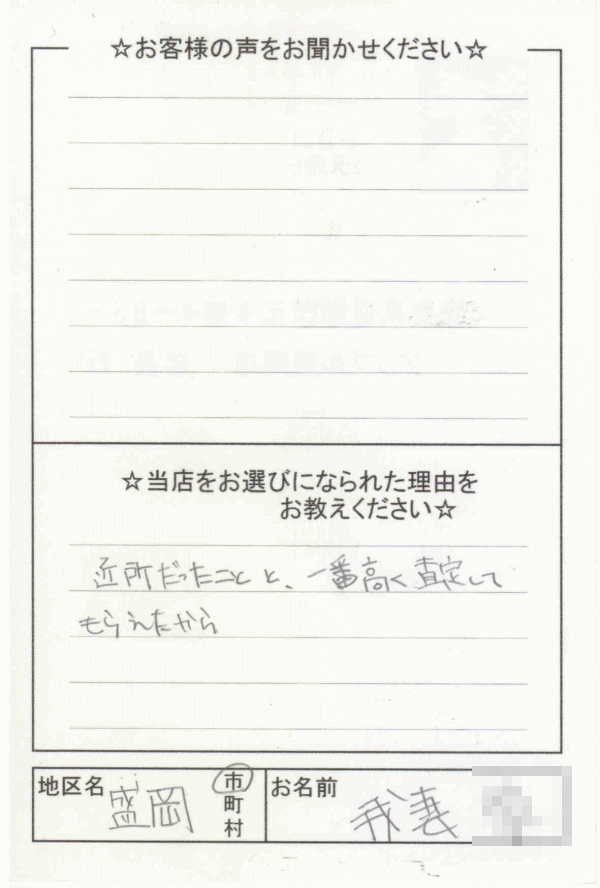 ☆お客様の声をお聞かせください☆
☆当店をお選びになられた理由を
お教えください☆
近所だったことと、一番高く査定して
もらえたから
地区名 盛岡 市
町
村
お名前 我妻